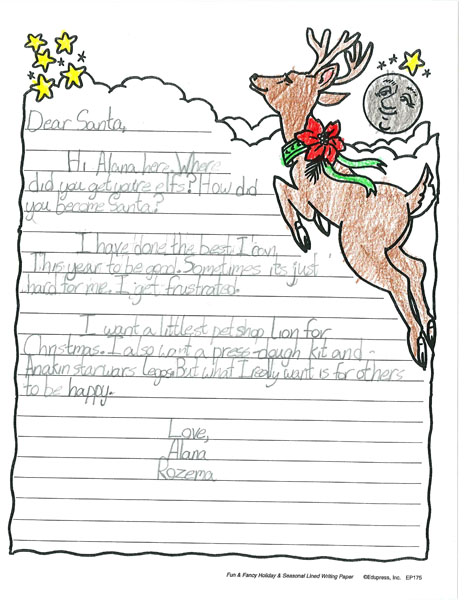 Dear Santa,
Hi Alana here. Where
did you get you're elfs? How did
you become Santa?
I have done the best I can
This year to be good. Sometimes it's just
hard for me. I get frustrated.
I want a littlest petshop Lion for
Christmas. I also want a press-dough kit and
Anakin starwars legos. But what I really want is for others
to be happy.
Love,
Alana
Rozema
Fun & Fancy Holiday & Seasonal Lined Writing Paper ©Edupress, Inc. EP175